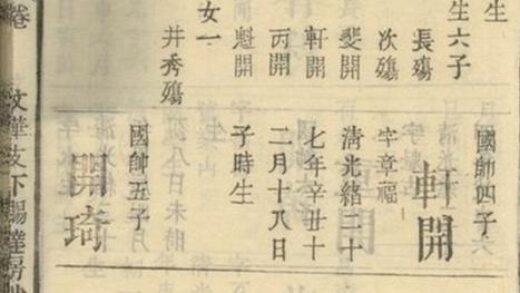 生
生六子
長殤
次殤
斐開
軒開
丙開
魁開
女一
井秀殤
國帥四子
軒開
字章福
清光緒二十
七年辛丑十
二月十八日
子時生
國帥五子
開琦
卷
支下賜達房